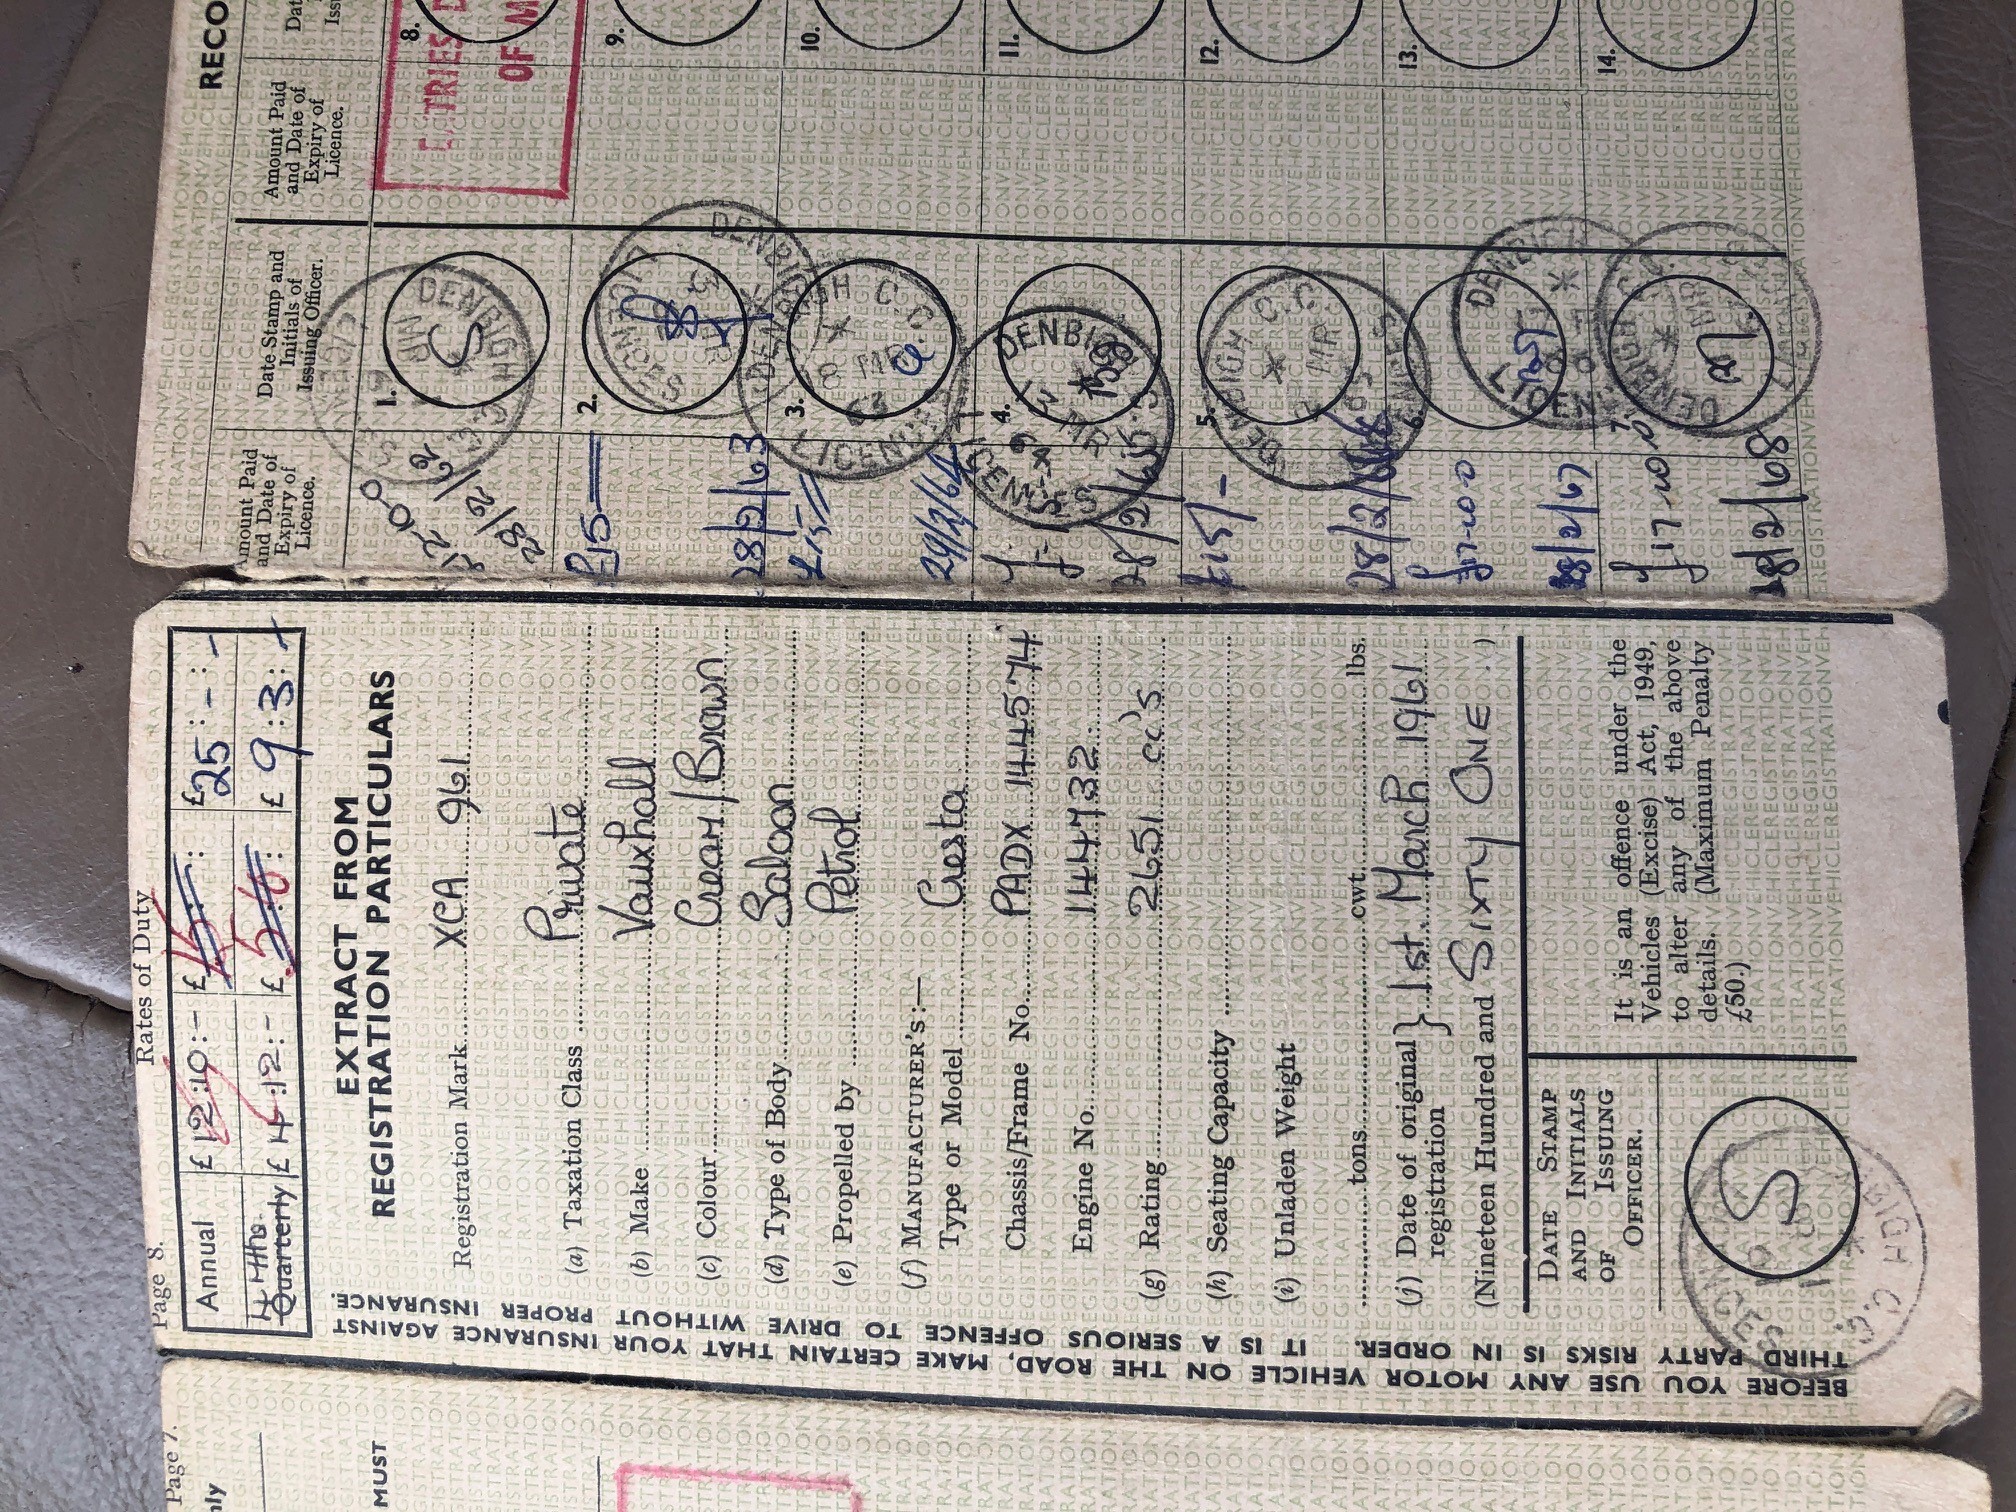 Page 8.
Rates of Duty
Annual £ 12:10:- £ 15 : £25:-:-
4 Mths. Quarterly £ 4:12:- £ 5:10: £ 9:3:-
EXTRACT FROM
REGISTRATION PARTICULARS
Registration Mark XCA 961
(a) Taxation Class Private
(b) Make Vauxhall
(c) Colour Cream/Brown
(d) Type of Body Saloon
(e) Propelled by Petrol
(f) MANUFACTURER'S:—
Type or Model Cresta
Chassis/Frame No. PADX 1445 74
Engine No. 144732
(g) Rating 2651 cc's
(h) Seating Capacity
(i) Unladen Weight
tons cwt. lbs.
(j) Date of original } 1st March 1961
registration
(Nineteen Hundred and SIXTY ONE :)
DATE STAMP
AND INITIALS
OF ISSUING
OFFICER.
S
It is an offence under the
Vehicles (Excise) Act, 1949,
to alter any of the above
details. (Maximum Penalty
£50.)
BEFORE YOU USE ANY MOTOR VEHICLE ON THE ROAD, MAKE CERTAIN THAT YOUR INSURANCE AGAINST
THIRD PARTY RISKS IS IN ORDER. IT IS A SERIOUS OFFENCE TO DRIVE WITHOUT PROPER INSURANCE.
RECO
Amount Paid
and Date of
Expiry of
Licence.
Date Stamp and
Initials of
Issuing Officer.
Amount Paid
and Date of
Expiry of
Licence.
1.
28/2/62
DENBIGH
S
2.
£15
28/2/63
LICENCES
DENBIGH
3.
£15
29/2/64
DENBIGH C.C.
8 MR
63
LICENCES
4.
28/2/65
DENBIGH
LICENCES
5.
£15/-
28/2/66
DENBIGH C.C.
MR
65
6.
£17-10-0
28/2/67
7.
£17 10 0
28/2/68
DENBIGH
8.
ENTRIES
OF M
9.
10.
11.
12.
13.
14.
Page 7.
MUST